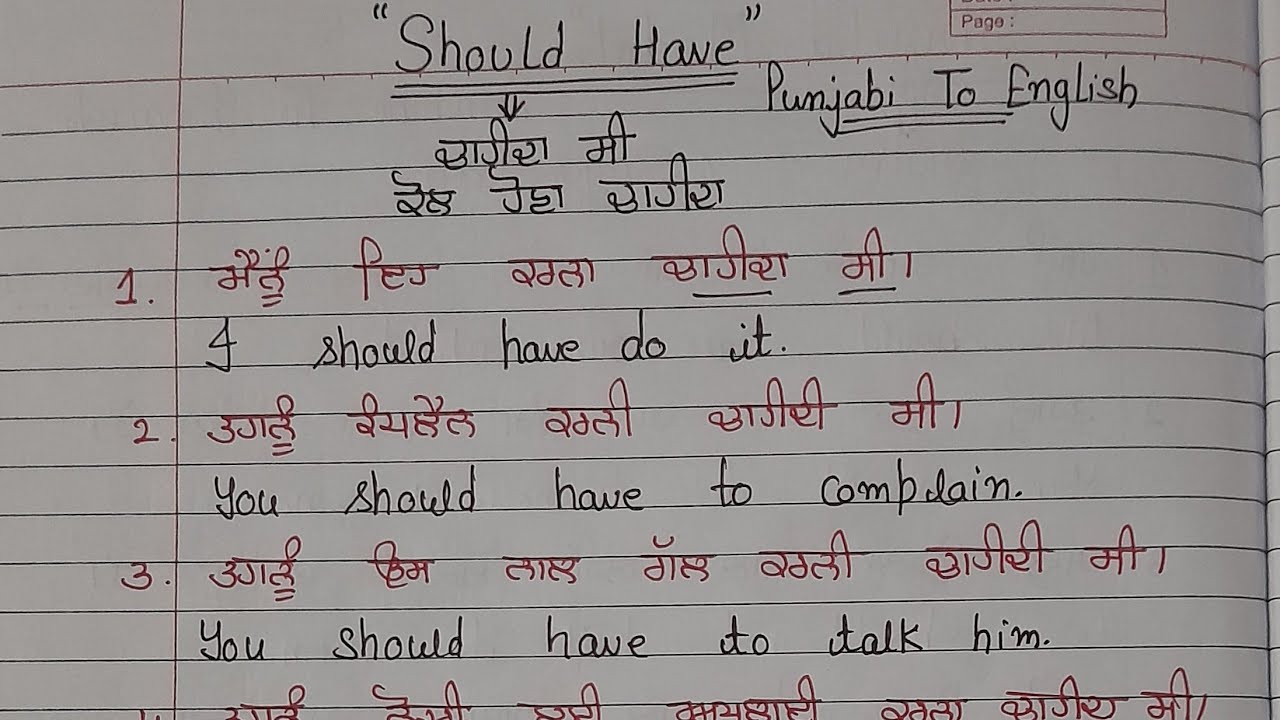 Page :
"Should Have"
Punjabi To English
ਚਾਹੀਦਾ ਸੀ
ਕੋਲ ਹੋਣਾ ਚਾਹੀਦਾ
1. ਮੈਨੂੰ ਇਹ ਕਰਨਾ ਚਾਹੀਦਾ ਸੀ।
I should have do it.
2. ਤੁਹਾਨੂੰ ਕੰਪਲੇਨ ਕਰਨੀ ਚਾਹੀਦੀ ਸੀ।
You should have to complain.
3. ਤੁਹਾਨੂੰ ਨਾਲ ਗੱਲ ਕਰਨੀ ਚਾਹੀਦੀ ਸੀ।
You should have to talk him.
ਕਰਨਾ ਚਾਹੀਦਾ ਸੀ।